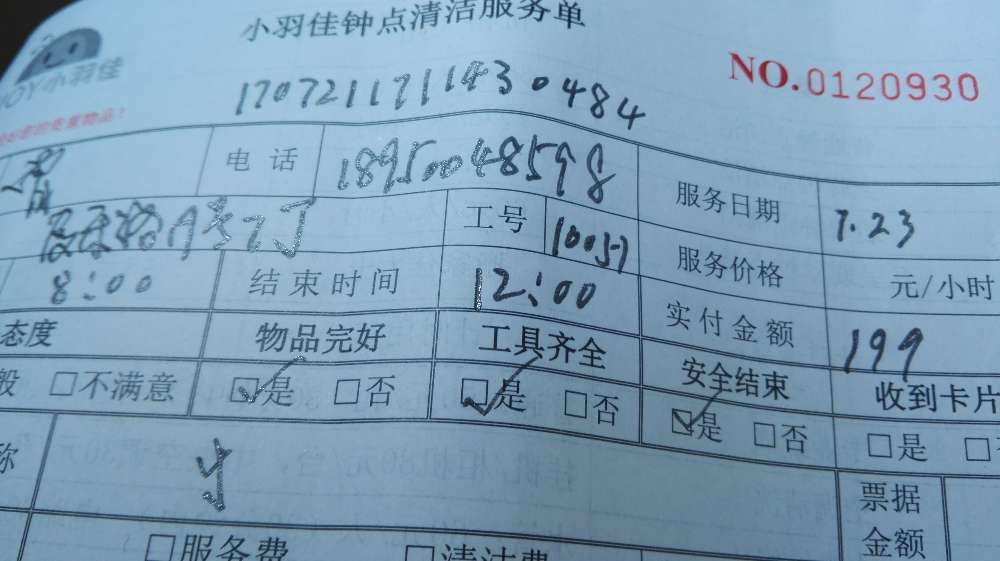 小羽佳钟点清洁服务单
JOY小羽佳
NO.0120930
170721171143 0484
电 话 18950048598 服务日期 7.23
工号 10057 服务价格 元/小时
8:00 结束时间 12:00 实付金额 199
态度 物品完好 工具齐全 安全结束 收到卡片
般 □不满意 ☑是 □否 ☑是 □否 ☑是 □否 □是
称 票据
金额
□服务费 □清洁费